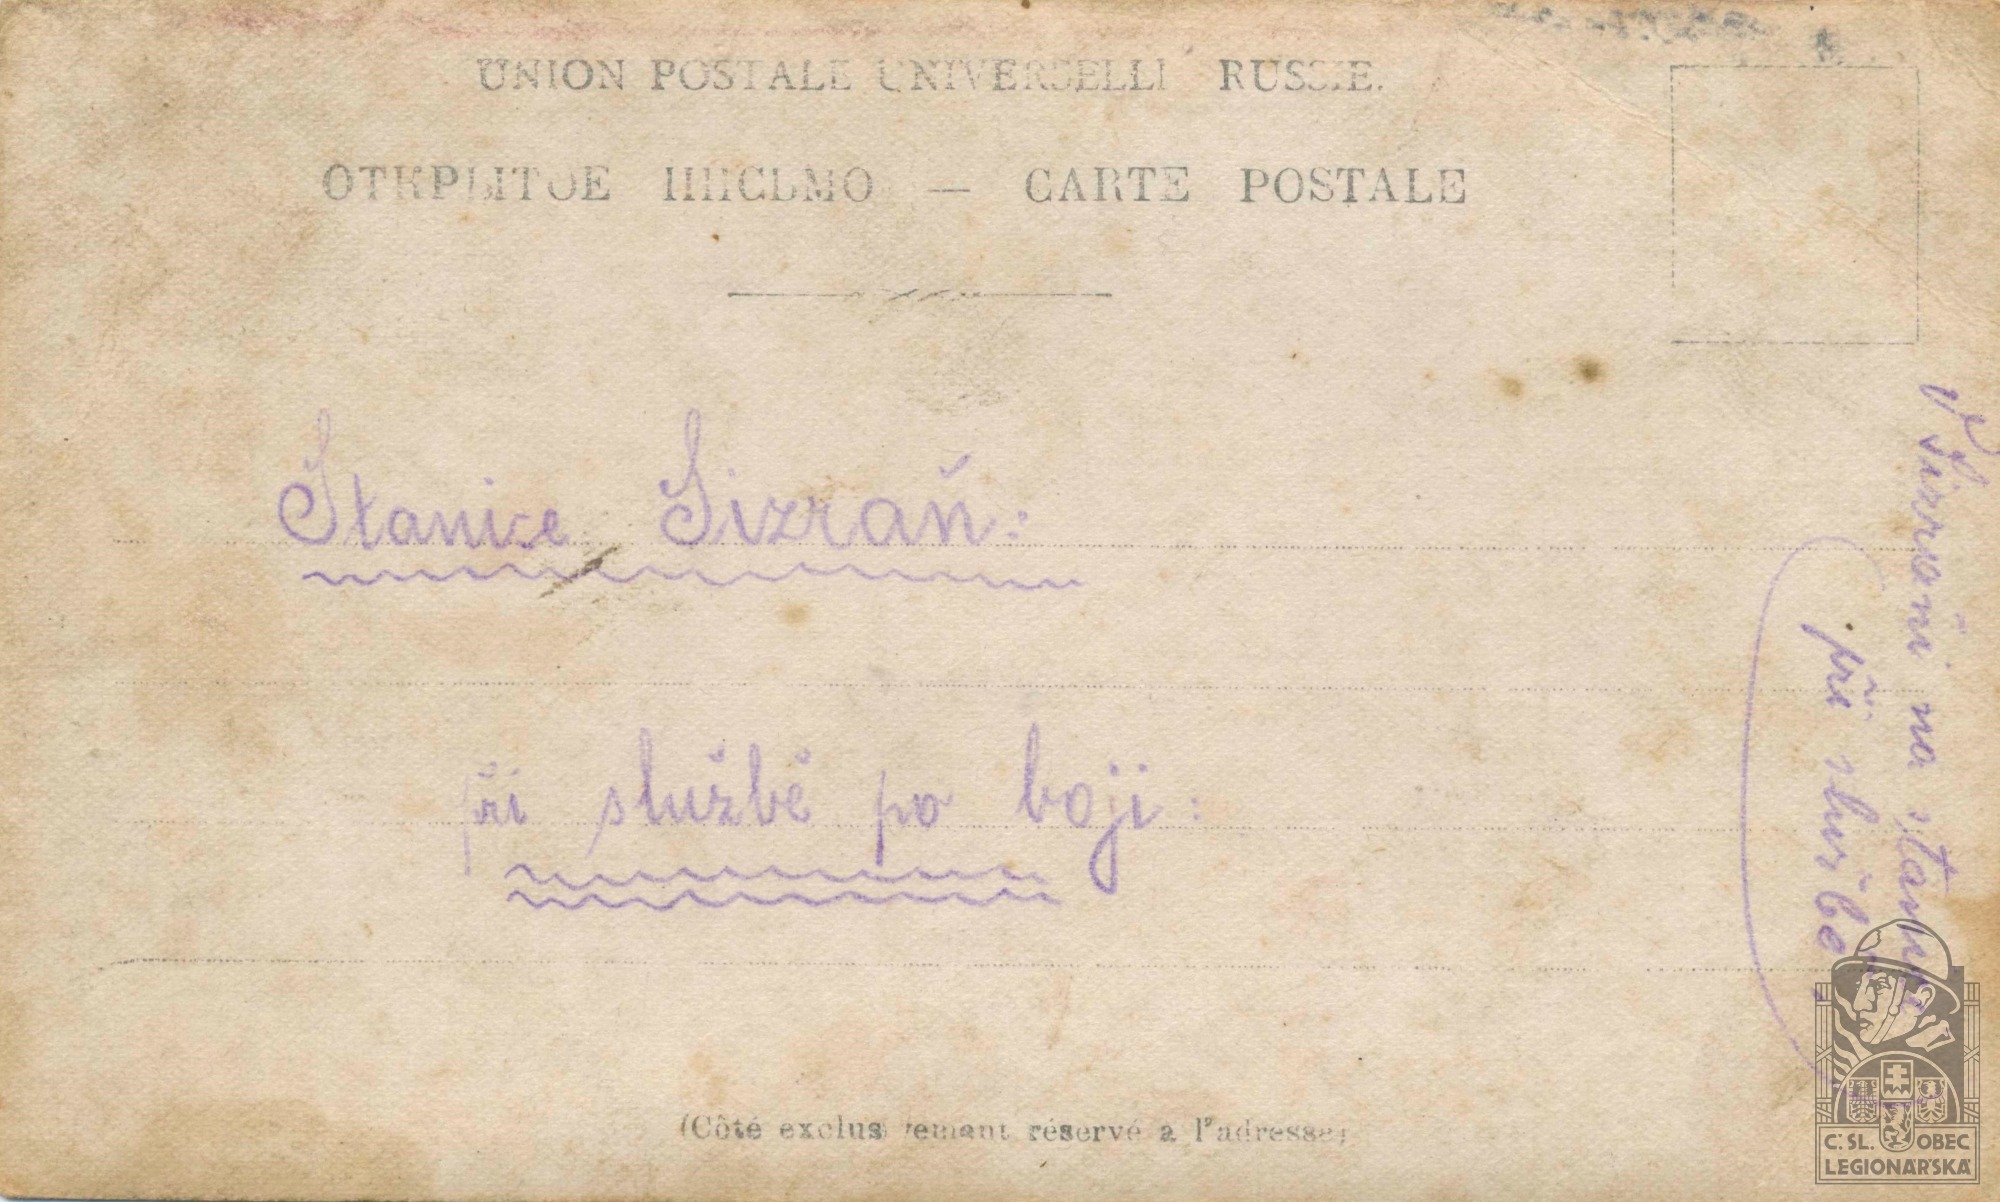 UNION POSTALE UNIVERSELLE RUSSIE.
ОТКРЫТОЕ ПИСЬМО — CARTE POSTALE
Stanice Sizraň:
při službě po boji:
(Côté exclusivemant réservé a l'adresse)
V Sizrani na stanici
při službě
Č. SL. OBEC
LEGIONÁŘSKÁ